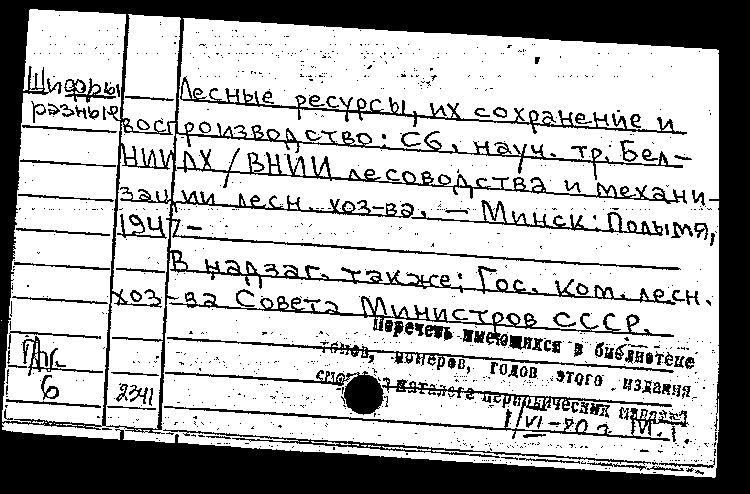 Шифры
разные
Лесные ресурсы, их сохранение и
воспроизводство: Сб. науч. тр. Бел-
НИИЛХ / ВНИИ лесоводства и механи-
зации лесн. хоз-ва. — Минск: Полымя,
1947-
В надзаг. также: Гос. ком. лесн.
хоз-ва Совета Министров СССР.
Перечень имеющихся в библиотеке
томов, номеров, годов этого издания
каталоге периодических изданий
6
2341